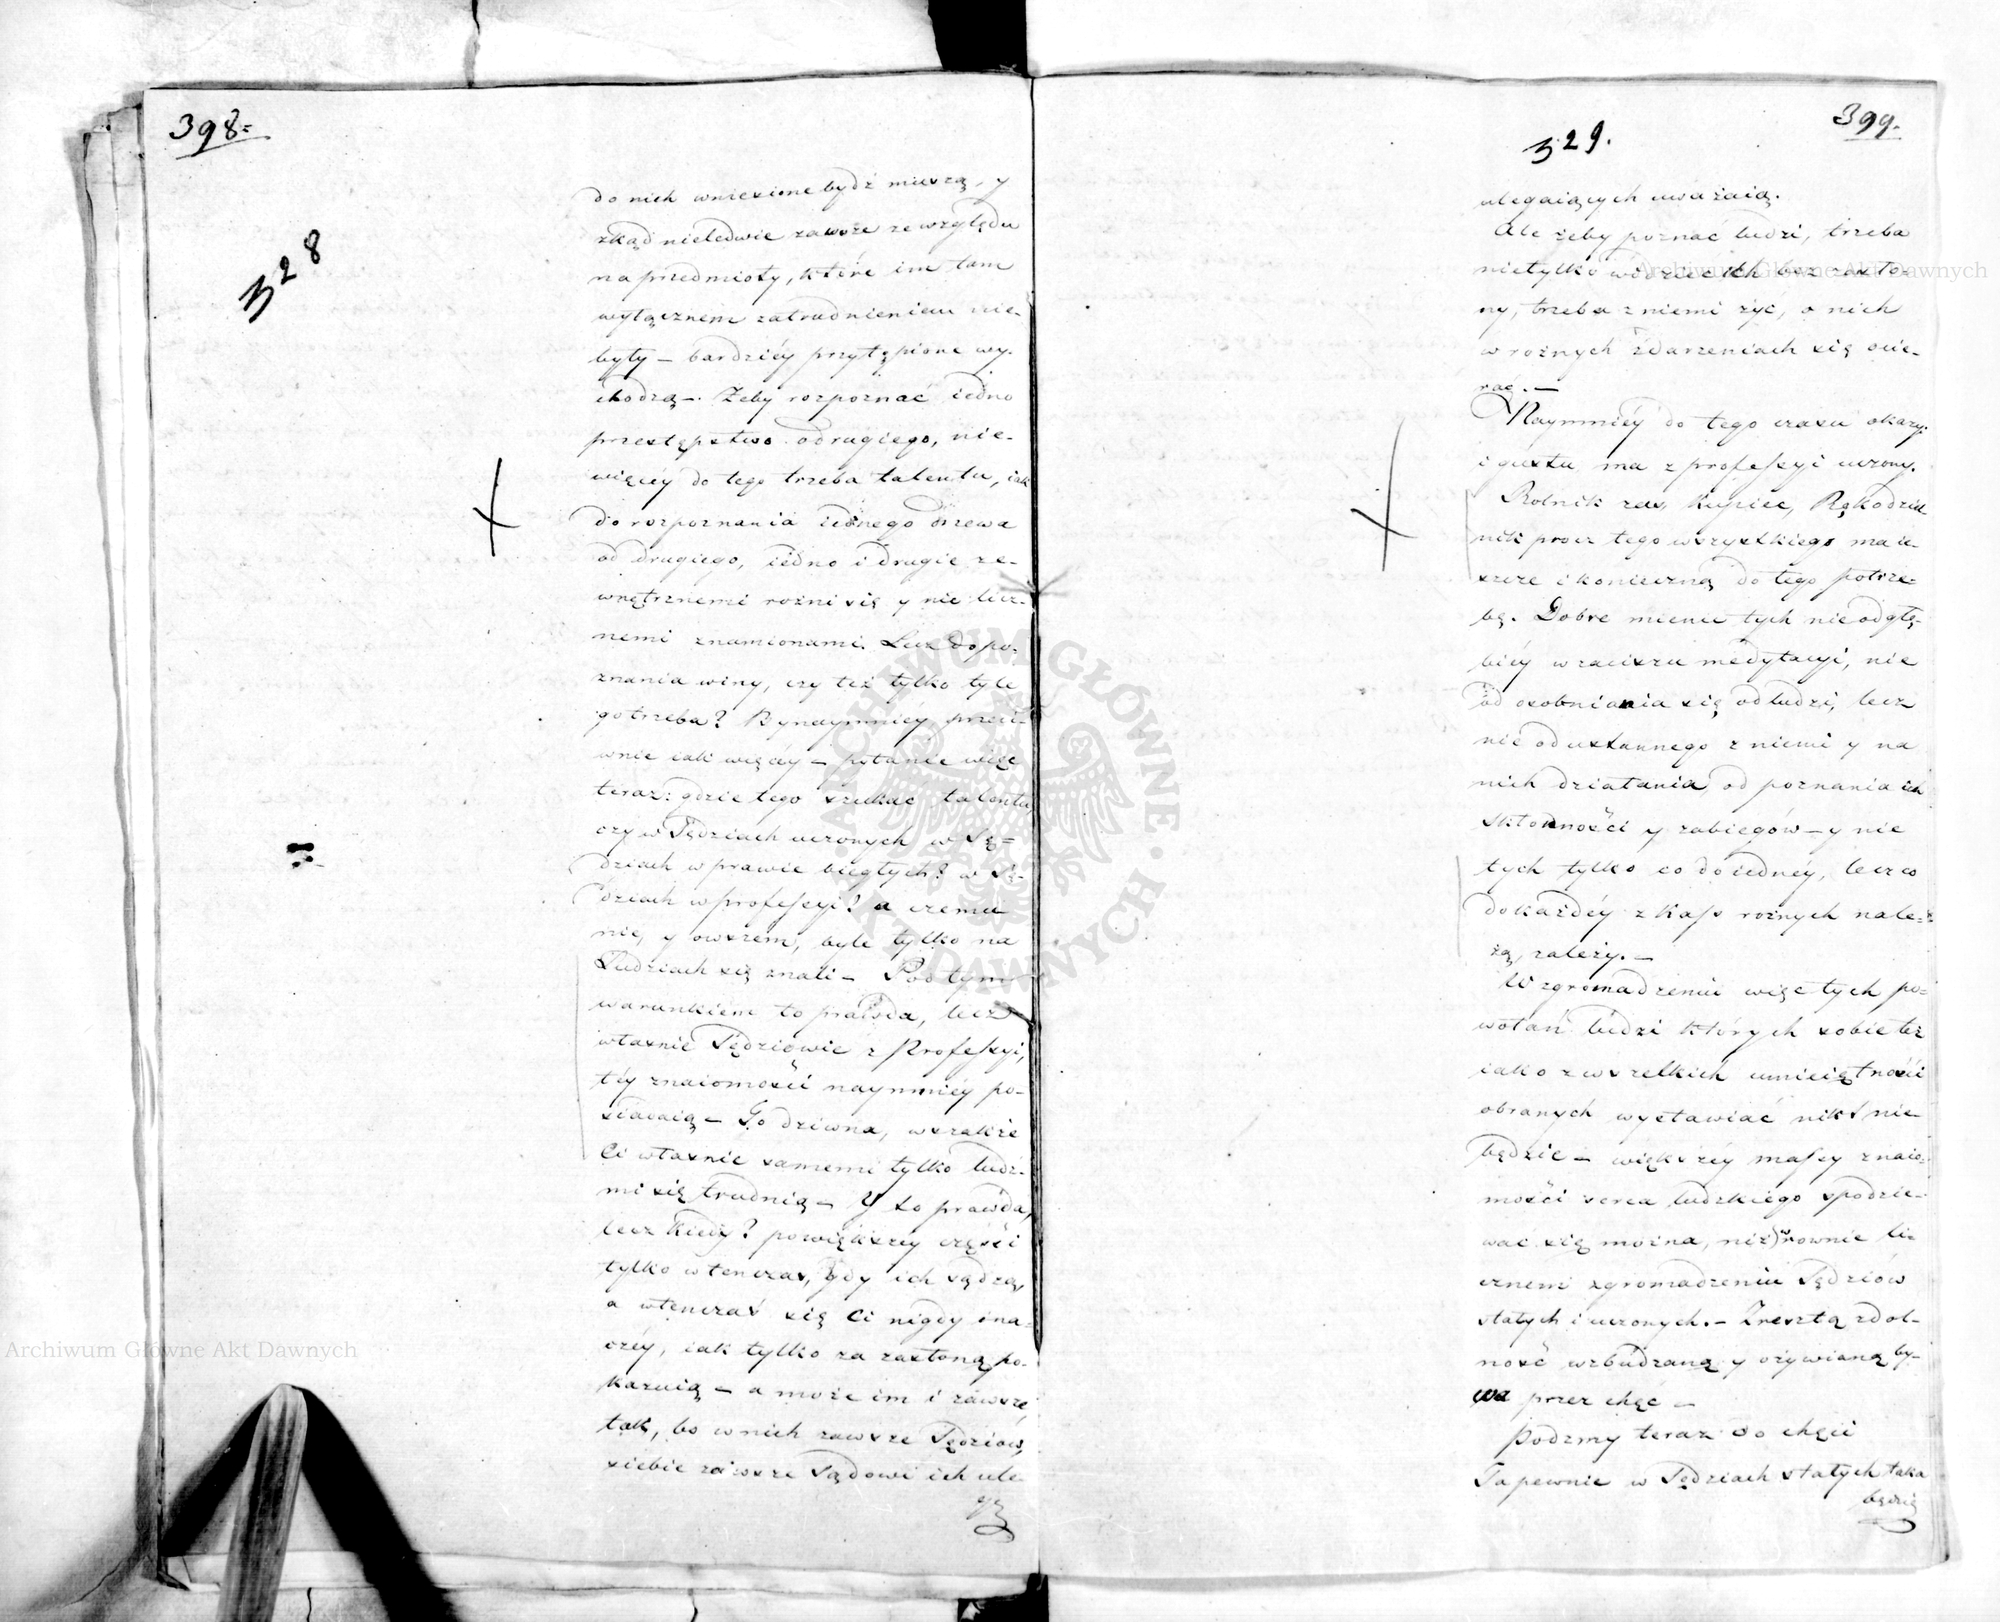 398=
328
do nich wniesione bydź muszą, y
zkąd nieledwie zawsze ze względu
na przedmioty, które im tam
wyłącznem zatrudnieniem nie-
były — bardziéy przytępione wy-
chodzą —. Zeby rozpoznać iedno
przestępstwo od drugiego, nie-
więcéy do tego trzeba talentu, iak
do rozpoznania iednego drzewa
od drugiego, iedno i drugie ze-
wnętrznemi rożni się y nie licz-
nemi znamionami. Lecz do po-
znania winy, czy też tylko tyle
go trzeba? Bynaymniéy przeci-
wnie iak więcéy — pytanie więc
teraz: gdzie tego szukać talentu,
czy w Sędziach uczonych w Sę=
dziach w prawie biegłych? w Sę-
dziach w professyi? a czemu
nie, y owszem, byle tylko na
Ludziach się znali — Pod tym
warunkiem to prawda, lecz
właśnie Sędziowie z Professyi,
téy znaiomości naymniéy po-
siadaią — To dziwna, wszakże
Ci właśnie samemi tylko ludź-
mi się trudnią — Y to prawda,
lecz kiedy? powiększey części
tylko wtenczas, gdy ich sądzą,
a wtenczas się Ci nigdy ina-
czéy, iak tylko za zasłoną po-
kazuią — a może im i zawsze
tak, bo w nich zawsze Sędziów,
siebie zawsze Sądowi ich ule-
399.
329.
ulegaiących uważaią.
Ale żeby poznać ludzi, trzeba
nietylko widzieć ich bez zasło-
ny, trzeba z niemi żyć, o nich
w rożnych zdarzeniach się ocie-
rać. —
Naymniéy do tego czasu okazy-
i gustu ma z professyi uczony.
Rolnik zaś, Kupiec, Rękodziel
nik procz tego wszystkiego ma ie-
szcze i konieczną do tego potrze-
bę. Dobre mienie tych nie od głę-
biéy w zaciszu medytacyi, nie
od osobniania się od ludzi, lecz
nie od ustannego z niemi y na
nich działania, od poznania ich
skłonności y zabiegów — y nie
tych tylko co do iednéy, lecz co
do każdéy z Klass rożnych nale=
żą, zależy. —
W zgromadzeniu więc tych po-
wołań ludzi których sobie też
iako z wszelkich umieiętności
obranych wystawiać nikt nie-
będzie — większéy massy znaio-
mości serca ludzkiego spodzie-
wać się można, niż w rownie li-
cznemi zgromadzeniu Sędziów
stałych i uczonych. — Zresztą zdol-
ność wzbudzaną y ożywianą by-
wa przez chęć —
Podzmy teraz do chęci
Ta pewnie w Sędziach stałych taka
będzie
Archiwum Główne Akt Dawnych
Archiwum Główne Akt Dawnych
ARCHIWUM GŁÓWNE · AKT DAWNYCH ·